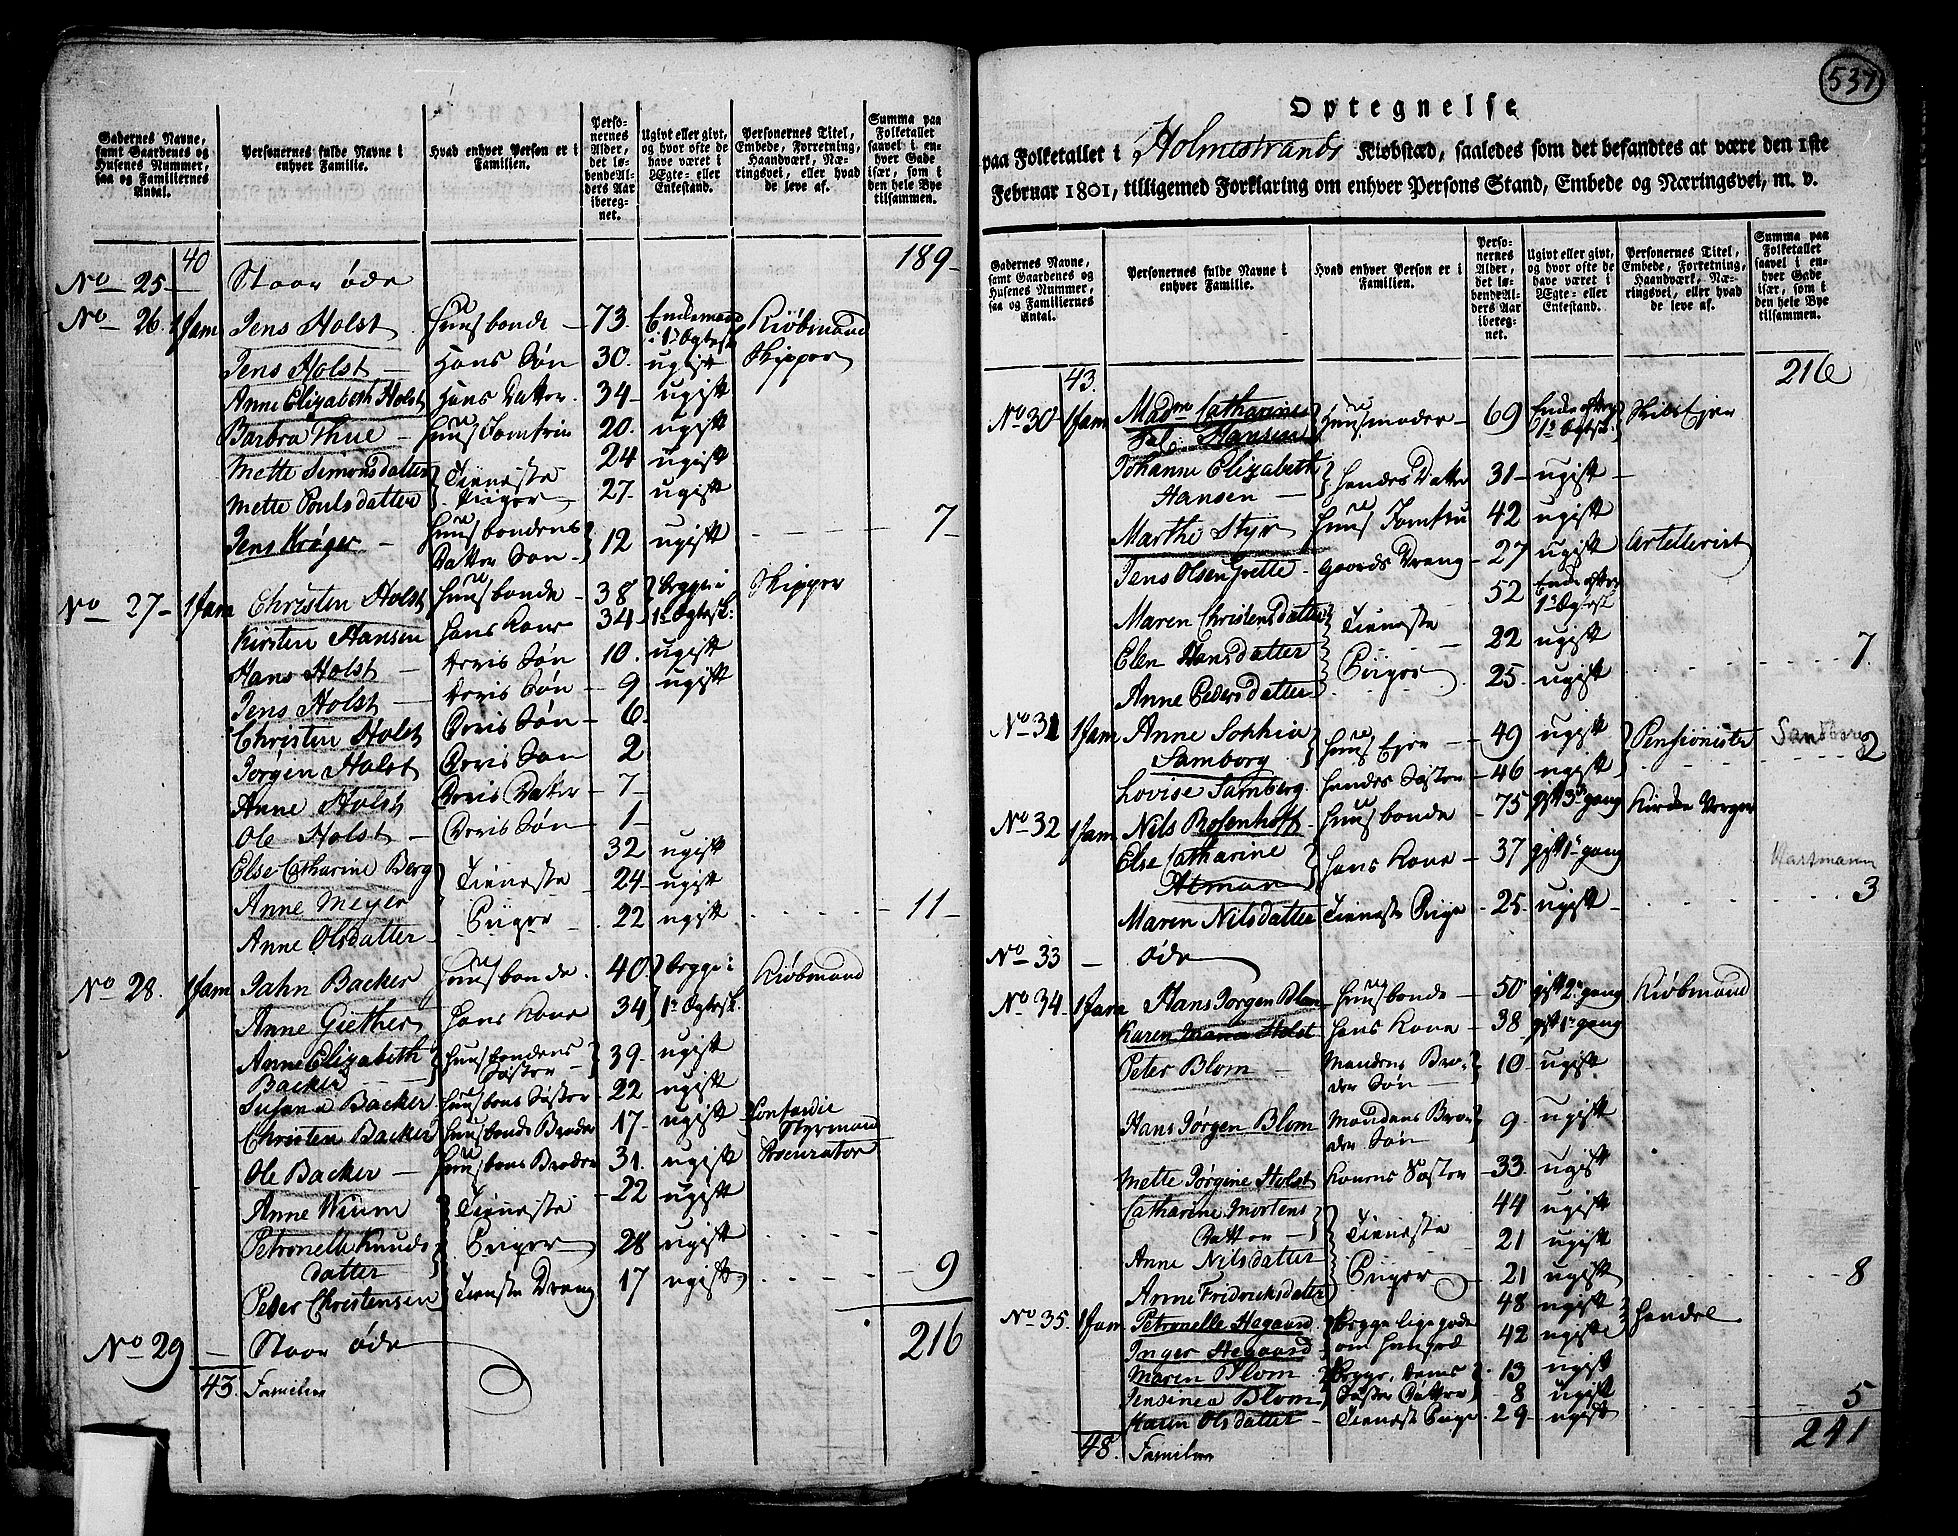 Gadernes Navne, samt Gaardenes og Husenes Nummer, saa og Familiernes Antal.
Personernes fulde Navne i enhver Familie.
Hvad enhver Person er i Familien.
Personernes Alder, det løbende Alders Aar iberegnet.
Ugivt eller givt, og hvor ofte de have været i Ægte- eller Enkestand.
Personernes Titel, Embede, Forretning, Haandværk, Næringsvei, eller hvad de leve af.
Summa paa Folketallet saavel i enhver Gade især, som i den hele Bye tilsammen.
40 189
No 25 Staar øde
No 26. 1 fam Jens Holst Huusbonde 73. Enkemand i 1ste Ægtesk Kiøbmand
Jens Holst Hans Søn 30. ugift Skipper
Anne Elizabeth Holst Hans Datter 34 ugift
Barbra Thue Huus Jomfru 20. ugift
Mette Simonsdatter Tieneste 24 ugift
Mette Poulsdatter Piiger 27. ugift
Jens Krøger Huusbondens Datter Søn 12 ugift 7
No 27 1 fam Christen Holst Huusbonde 38 begge i Skipper
Kirsten Hansen Hans Kone 34 1te Ægtesk:
Hans Holst Deris Søn 10. ugift
Jens Holst Deris Søn 9 ugift
Christen Holst Deris Søn 6
Jørgen Holst Deris Søn 2
Anne Holst Deris Datter 7
Ole Holst Deris Søn 1
Else Catharine Berg 32 ugift
Anne Meyer Tieneste 24 ugift
Anne Olsdatter Piiger 22 ugift 11
No 28. 1 fam Jahn Backer Huusbonde 40 begge i Kiøbmand
Anne Giether Hans Kone 34 1te Ægtesk.
Anne Elizabeth Backer Huusbondens Søster 39. ugift
Susana Backer Huusbons Søster 22 ugift
Christen Backer Huusbonds Broder 17. ugift Confardie Styrmand
Ole Backer Huusbons Broder 31. ugift Procurator
Anne Wium Tieneste 22 ugift
Petronelle Knuds datter Piiger 28 ugift
Peder Christensen Tieneste Dreng 17 ugift 9
No 29 Staar øde 216
43. Familier
537
Optegnelse
paa Folketallet i Holmestrands Kiøbstæd, saaledes som det befandtes at være den 1ste
Februar 1801, tilligemed Forklaring om enhver Persons Stand, Embede og Næringsvei, m. v.
Gadernes Navne, samt Gaardenes og Husenes Nummer, saa og Familiernes Antal.
Personernes fulde Navne i enhver Familie.
Hvad enhver Person er i Familien.
Personernes Alder, det løbende Alders Aar iberegnet.
Ugivt eller givt, og hvor ofte de have været i Ægte- eller Enkestand.
Personernes Titel, Embede, Forretning, Haandværk, Næringsvei, eller hvad de leve af.
Summa paa Folketallet saavel i enhver Gade især, som i den hele Bye tilsammen.
43. 216
No 30 1 fam Madme Catharine Sal: Hansen Huusmoder 69 Enke efter 1te Ægtesk. Skibs Ejer
Johanne Elizabeth Hansen Hendes Datter 31 ugift
Marthe Styr Huus Jomfru 42 ugift
Jens Olsen Grette Gaards Dreng 27 ugift Artellerist
Maren Christensdatter Tieneste 52 Enke efter 1te Ægtesk
Elen Hansdatter Piiger 22 ugift
Anne Pedersdatter 25 ugift 7.
No 31 1 fam Anne Sophia Samborg Huus Ejer 49 ugift Pensionister Sandborg
Lovise Samberg. Hendes Søster 46 ugift 2
No 32 1 fam Nils Rosenhoff Huusbonde 75 gift 3die gang Kirke Verger
Else Catharine Atman Hans Kone 37 gift 1te gang Hartmann
Maren Nilsdatter Tieneste Piige 25 ugift 3
No 33 øde
No 34 1 fam Hans Jørgen Blom Huusbonde 50 gift 2. gang Kiøbmand
Karen Maria Holst Hans Kone 38 gift 1te gang
Peter Blom Mandens Broder Søn 10 ugift
Hans Jørgen Blom Mandens Broder Søn 9 ugift
Mette Jørgine Holst Konens Søster 33 ugift
Catharine Mortens Datter Tieneste 44 ugift
Anne Nilsdatter Piiger 21 ugift
Anne Fridricksdatter 21 ugift 8
No 35. 1 fam Petronelle Hegaard Begge lige gode 48 ugift Handel
Inger Hegaard om Huused 42 ugift
Maren Blom Begge deris 13 ugift
Jensinea Blom Søster Døttre 8 ugift
Karen Olsdatter Tieneste Piige 29 ugift 5
48. Familier 241